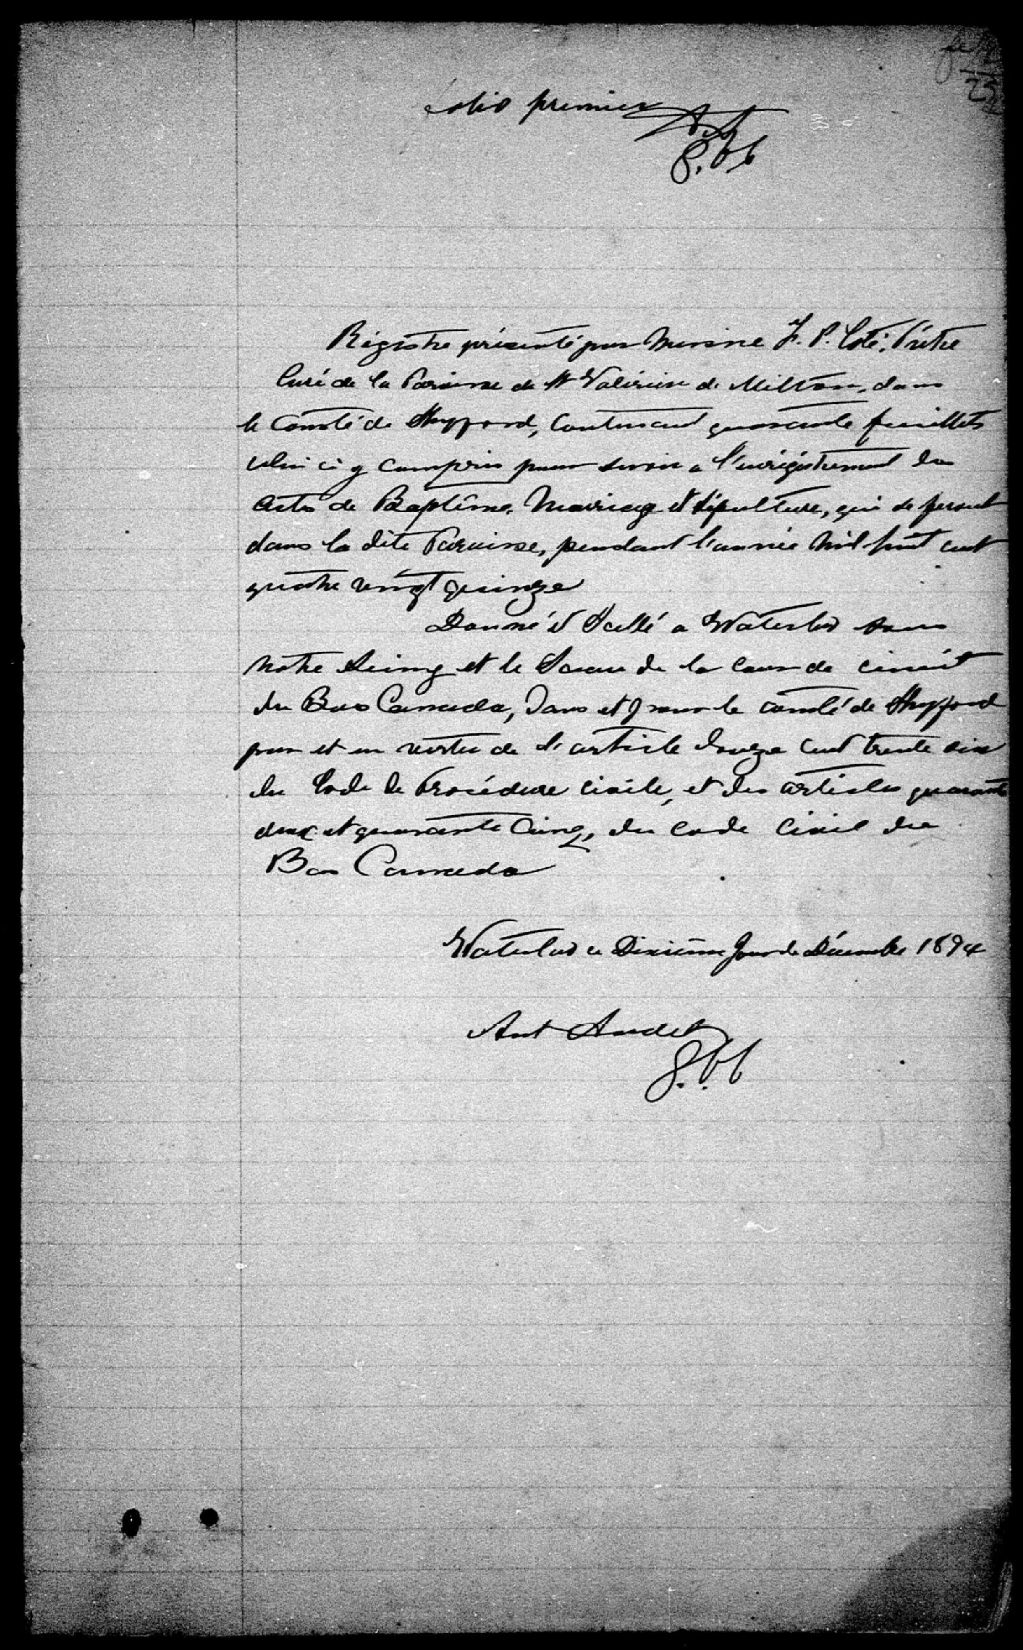 folio premier
A.A
G.C.C
Régistre présenté par Messire F. P. Coté, Prêtre
Curé de la Paroisse de St Valérien de Milton, dans
le Comté de Shefford, Contenant quarante feuillets
celui ci y compris pour servir a l'enrégistrement des
actes de Baptême, Mariage et Sépulture, qui se feront
dans la dite Paroisse, pendant l'année Mil huit cent
quatre vingt quinze
Donné et Scellé a Waterloo sous
notre Seing et le Sceau de la cour de circuit
du Bas Canada, Dans et pour le comté de Shefford
par et en vertu de l'article douze cent trente six
du Code de Procédure civile, et des articles quarante
deux et quarante Cinq, du code Civil du
Bas Canada
Waterloo ce Dixième Jour de Décembre 1894
Ant Audet
G.C.C